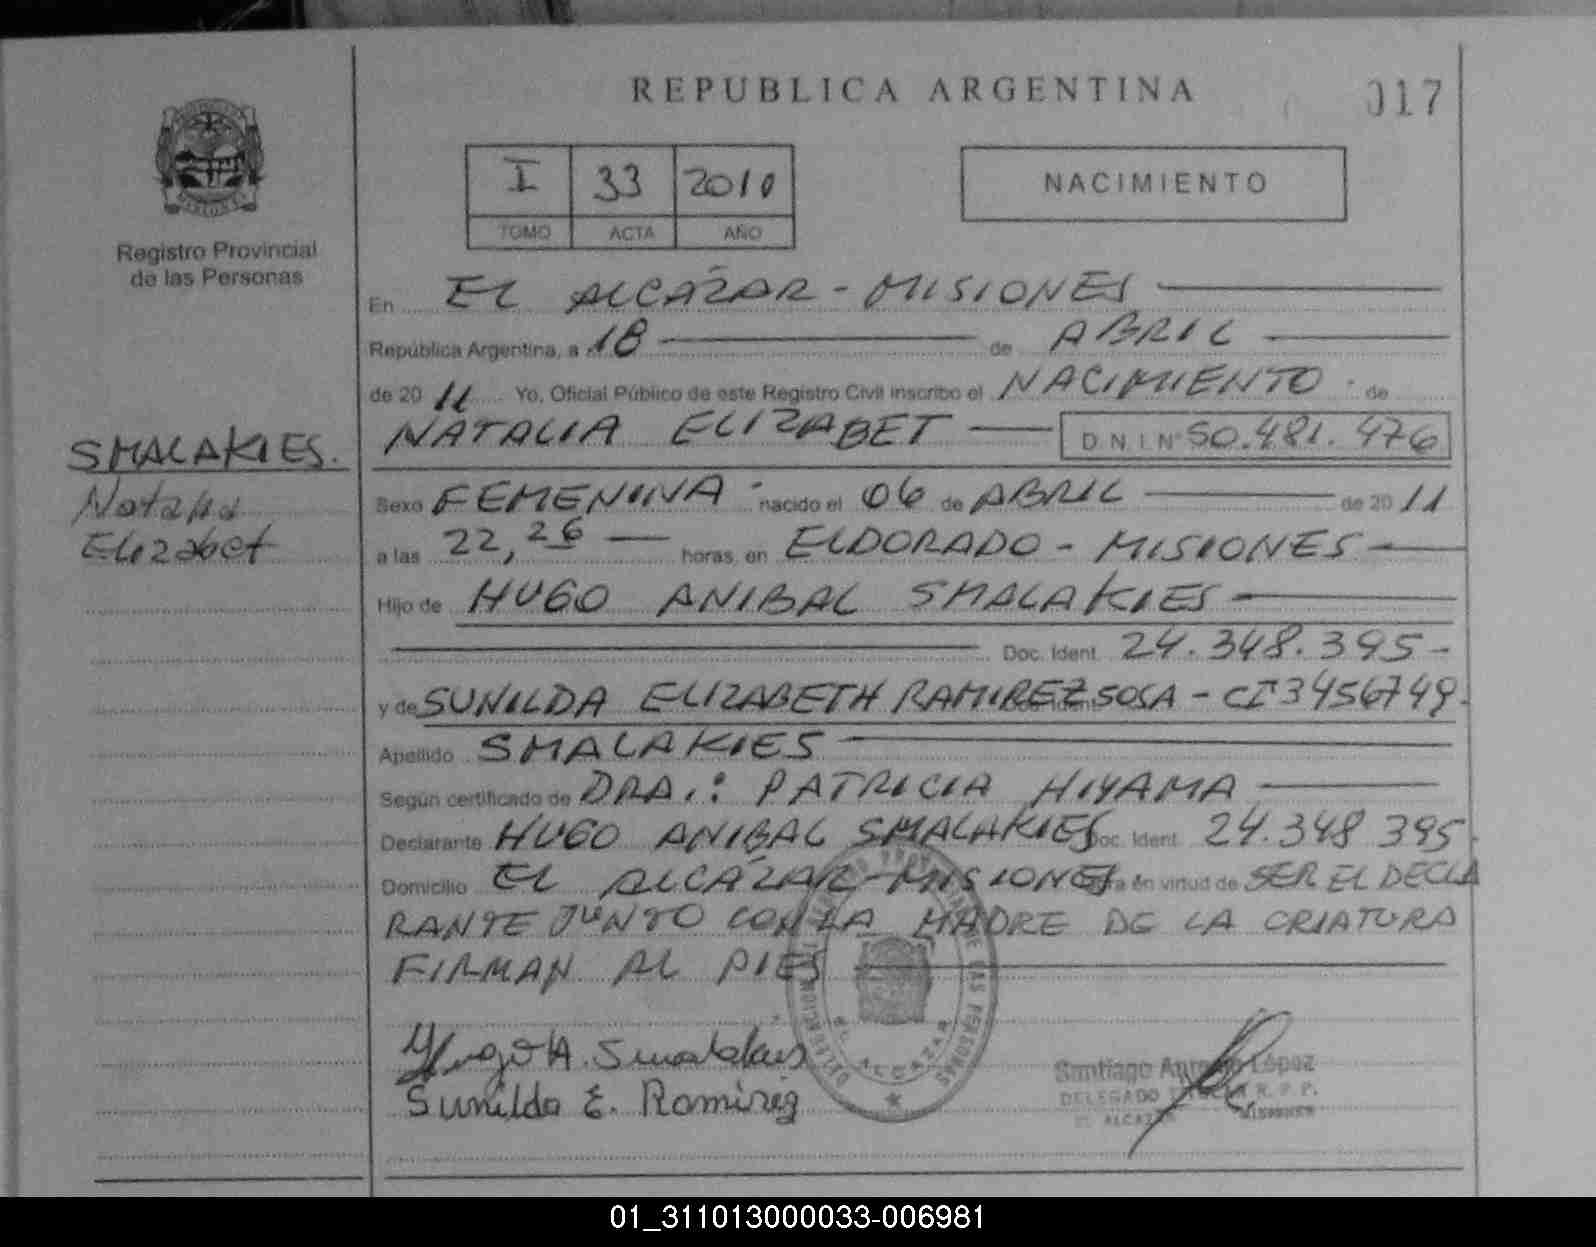 REPUBLICA ARGENTINA
017
Registro Provincial
de las Personas
I 33 2010
TOMO ACTA AÑO
NACIMIENTO
En EL ALCAZAR - MISIONES
República Argentina, a 18 de ABRIL
de 2011 Yo, Oficial Público de este Registro Civil inscribo el NACIMIENTO de
NATALIA ELIZABET D.N.I. Nº 50.481.476
SMALAKIES.
Natalia
Elizabet
Sexo FEMENINA nacido el 06 de ABRIL de 2011
a las 22,26 horas, en ELDORADO - MISIONES
Hijo de HUGO ANIBAL SMALAKIES
Doc. Ident. 24.348.395-
y de SUNILDA ELIZABETH RAMIREZ SOSA - CI 3456749-
Apellido SMALAKIES
Según certificado de DRA.: PATRICIA HIYAMA
Declarante HUGO ANIBAL SMALAKIES Doc. Ident. 24.348 395.
Domicilio EL ALCÁZAR - MISIONES en virtud de SER EL DECLA
RANTE JUNTO CON LA MADRE DE LA CRIATURA
FIRMAN AL PIES
Hugo A. Smalakies
Sunilda E. Ramirez
EL ALCAZAR
DE LAS PERSONAS
Santiago López
DELEGADO R.P.P.
EL ALCAZAR MISIONES
01_311013000033-006981